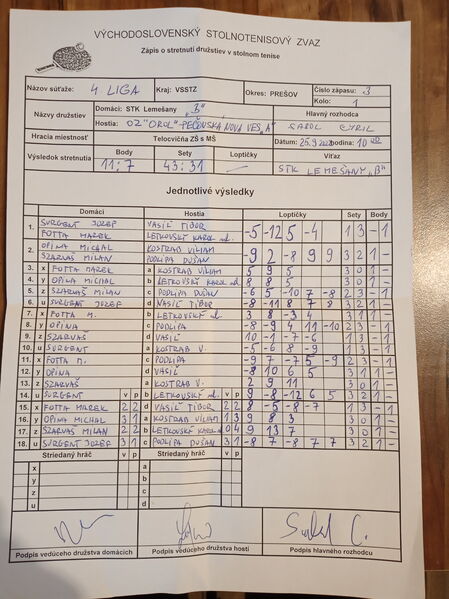 VÝCHODOSLOVENSKÝ STOLNOTENISOVÝ ZVÄZ
Zápis o stretnutí družstiev v stolnom tenise
Názov súťaže: 4 LIGA Kraj: VSSTZ Okres: PREŠOV Číslo zápasu: 3
Kolo: 1
Názvy družstiev Domáci: STK Lemešany "B" Hlavný rozhodca
Hostia: OZ "OROL" PEČOVSKÁ NOVÁ VES "A" CYRIL
Hracia miestnosť Telocvičňa ZŠ s MŠ Dátum: 25.9. Hodina: 10
Výsledok stretnutia Body Sety Loptičky Víťaz
11:7 43:31 STK LEMEŠANY "B"
Jednotlivé výsledky
Domáci Hostia Loptičky Sety Body
1. SURGENT JOZEF VASIĽ TIBOR -5 -12 5 -4 1 3 - 1
FOTTA MAREK LETKOVSKÝ KAROL ml.
2. OPINA MICHAL KOSTRAB VILIAM -9 2 -8 9 9 3 2 1 -
SZARVAŠ MILAN PODLIPA DUŠAN
3. x FOTTA MAREK a KOSTRAB VILIAM 5 9 5 3 0 1 -
4. y OPINA MICHAL b LETKOVSKÝ KAROL ml. 8 8 5 3 0 1 -
5. z SZARVAŠ MILAN c PODLIPA DUŠAN -6 5 -10 7 -8 2 3 - 1
6. u SURGENT JOZEF d VASIĽ TIBOR -8 -11 8 7 8 3 2 1 -
7. x FOTTA M. b LETKOVSKÝ ml. 3 8 -3 4 3 1 1 -
8. y OPINA c PODLIPA -8 -9 4 11 -10 2 3 - 1
9. z SZARVAŠ d VASIĽ 10 -1 -7 -6 1 3 - 1
10. u SURGENT a KOSTRAB V. -5 -6 8 -9 1 3 - 1
11. x FOTTA M. c PODLIPA -9 7 -7 5 -9 2 3 - 1
12. y OPINA d VASIĽ -8 10 6 5 3 1 1 -
13. z SZARVAŠ a KOSTRAB V. 2 9 11 3 0 1 -
14. u SURGENT v p b LETKOVSKÝ ml. v p 9 -8 -12 6 5 3 2 1 -
15. x FOTTA MAREK 2 2 d VASIĽ TIBOR 2 2 8 -5 -8 -7 1 3 - 1
16. y OPINA MICHAL 3 1 a KOSTRAB VILIAM 1 3 9 8 3 3 0 1 -
17. z SZARVAŠ MILAN 2 2 b LETKOVSKÝ KAROL ml. 0 4 9 13 7 3 0 1 -
18. u SURGENT JOZEF 3 1 c PODLIPA DUŠAN 3 1 -8 7 -8 7 7 3 2 1 -
Striedaný hráč v p Striedaný hráč v p
x a
y b
z c
u d
Podpis vedúceho družstva domácich Podpis vedúceho družstva hostí Podpis hlavného rozhodcu